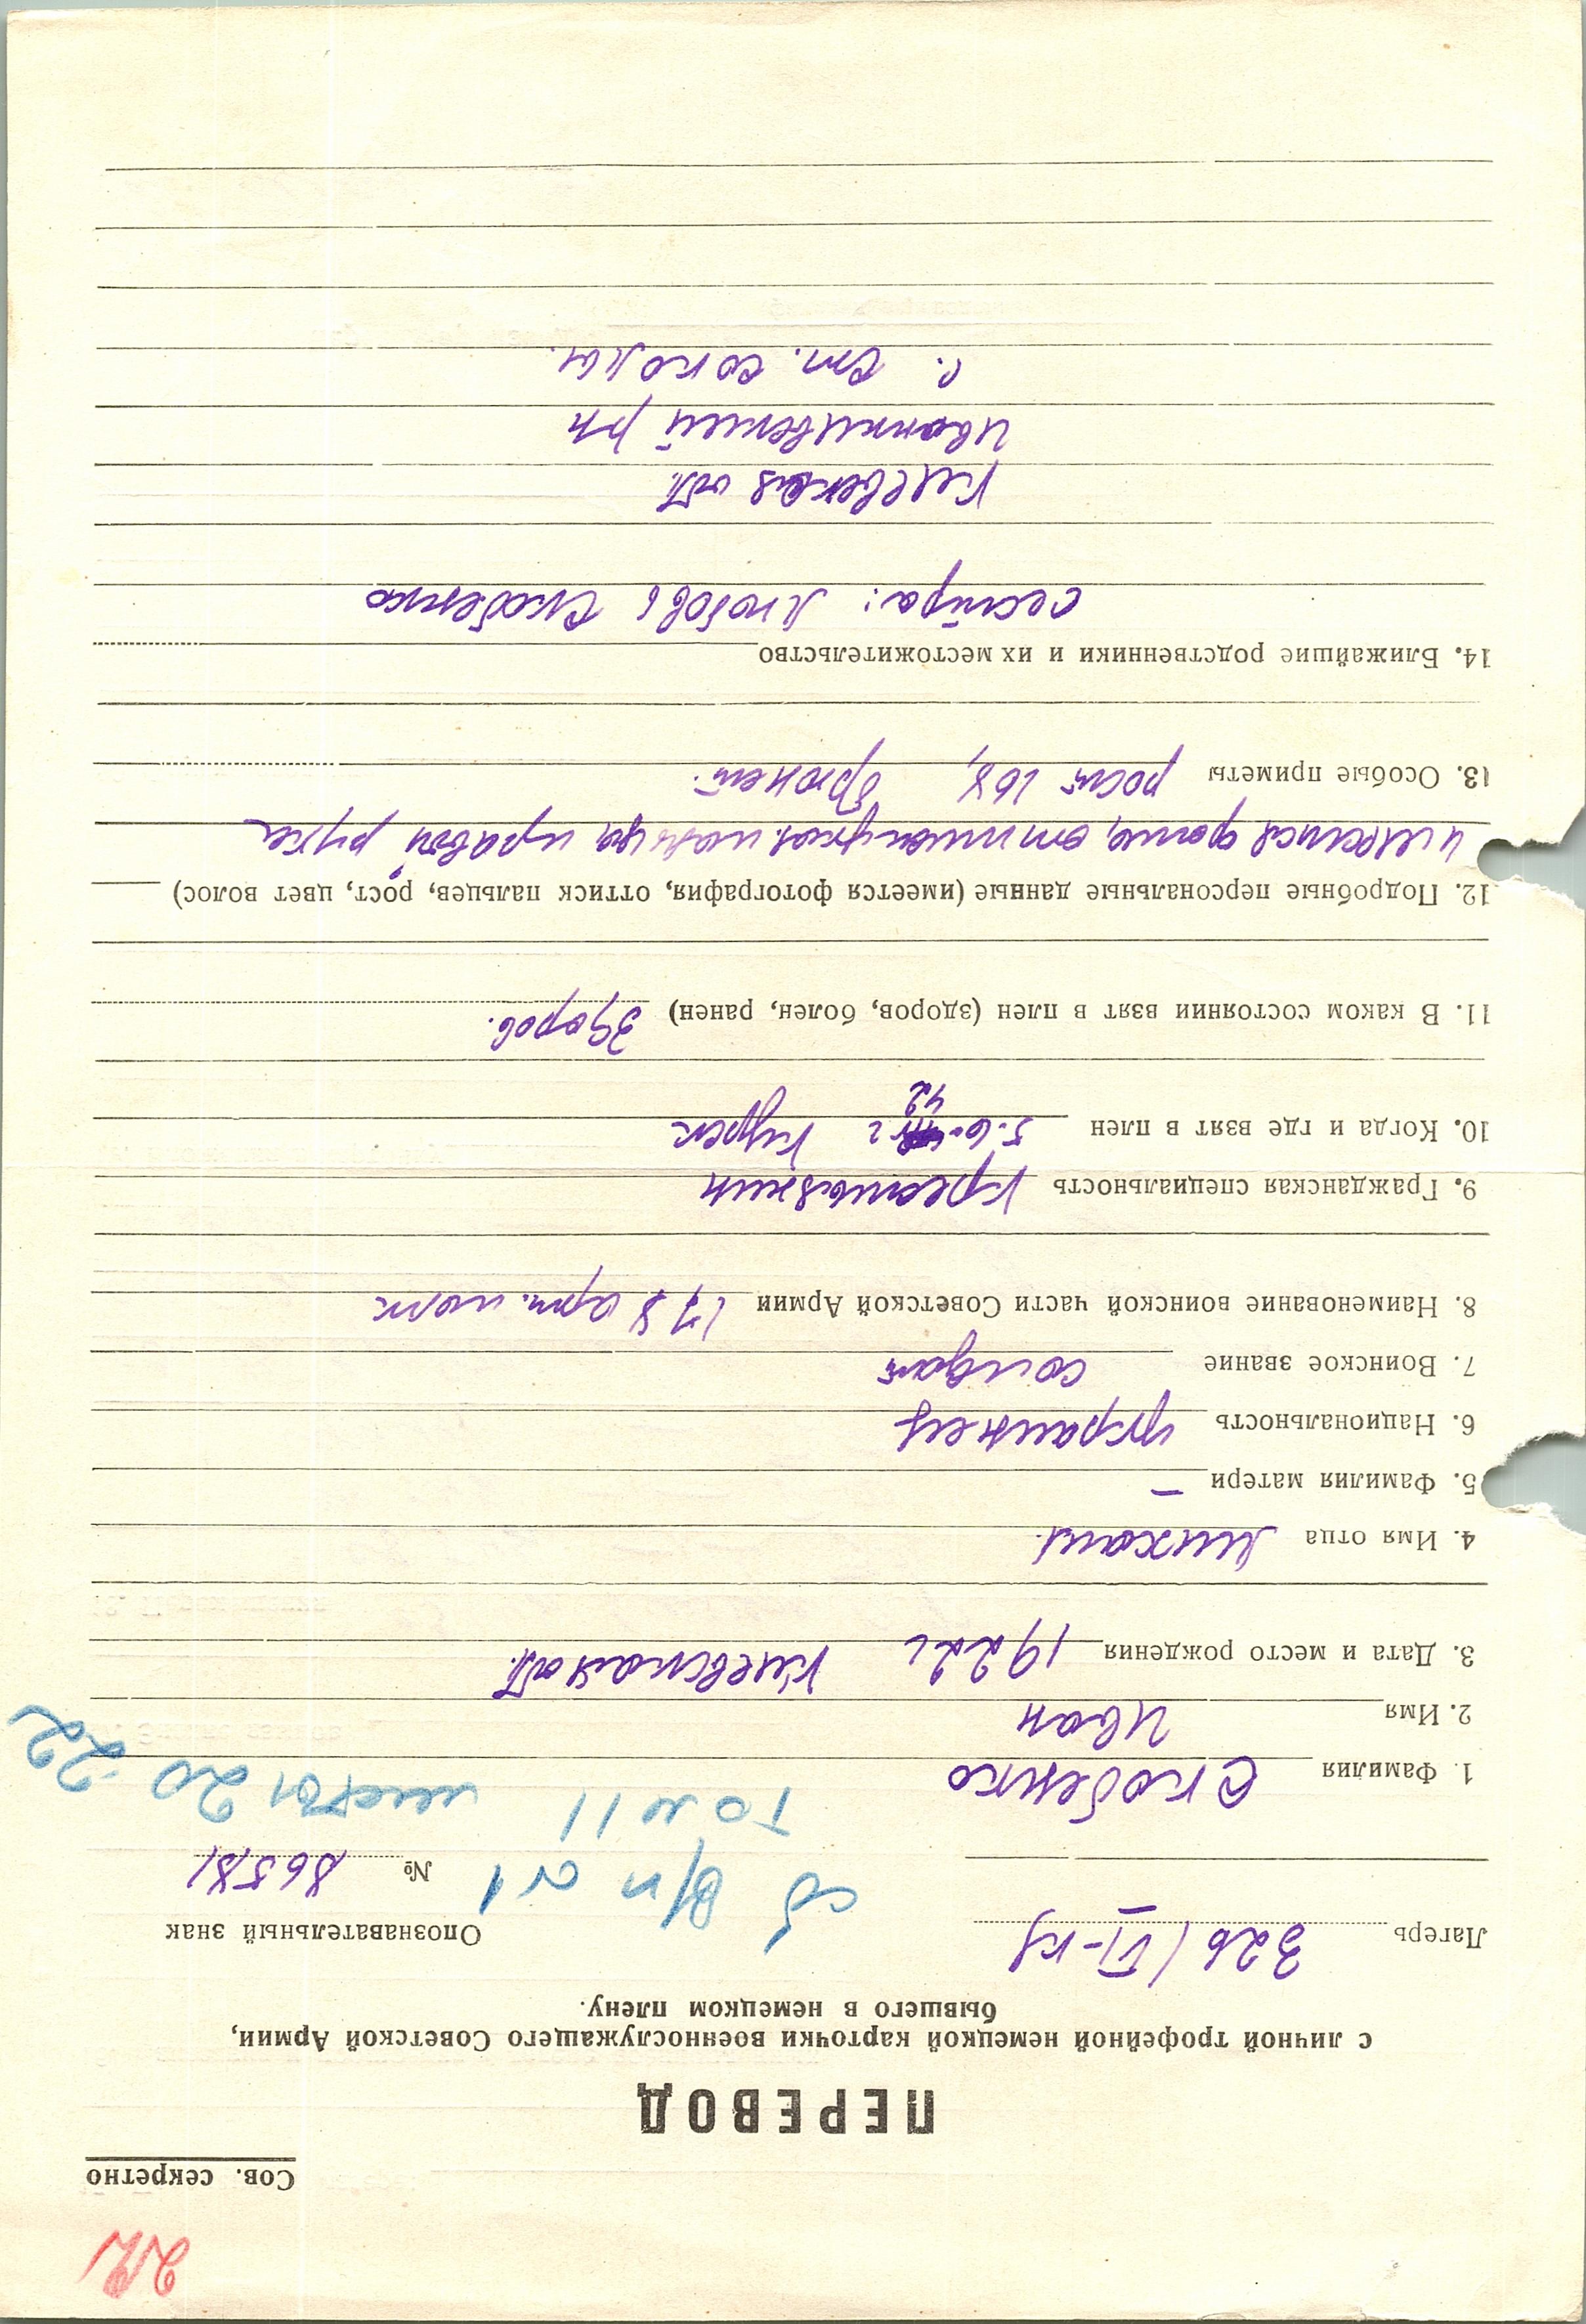 22
Сов. секретно
ПЕРЕВОД
с личной трофейной немецкой карточки военнослужащего Советской Армии,
бывшего в немецком плену.
Лагерь 326/VI-К Опознавательный знак
№ 86581
сб в/п № 1
том 11 листы 20-22
1. Фамилия Скобенко
2. Имя Иван
3. Дата и место рождения 1922 г Киевская обл.
4. Имя отца Михаил
5. Фамилия матери —
6. Национальность украинец
7. Воинское звание солдат
8. Наименование воинской части Советской Армии 178 арт. полк
9. Гражданская специальность крестьянин
10. Когда и где взят в плен 5.6. 42 г Курск
11. В каком состоянии взят в плен (здоров, болен, ранен) здоров.
12. Подробные персональные данные (имеется фотография, оттиск пальцев, рост, цвет волос)
имеется фото, оттиск указ. пальца правой руки
13. Особые приметы рост 168, брюнет.
14. Ближайшие родственники и их местожительство
сестра: Любовь Скобенко
Киевская обл.
Иванкивский р-н
с. Ст. Соколы.